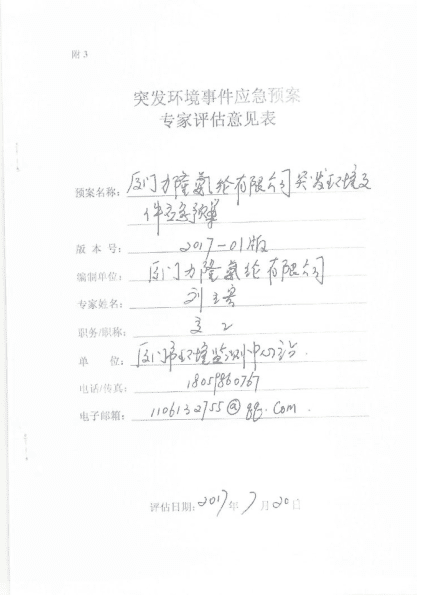 附 3
突发环境事件应急预案
专家评估意见表
预案名称：厦门力隆氨纶有限公司突发环境事
件应急预案
版 本 号：2017-01版
编制单位：厦门力隆氨纶有限公司
专家姓名：刘
职务/职称：高工
单 位：厦门市环境监测中心站.
电话/传真：18059860767
电子邮箱：1106132755@qq.com.
评估日期：2017年7月20日